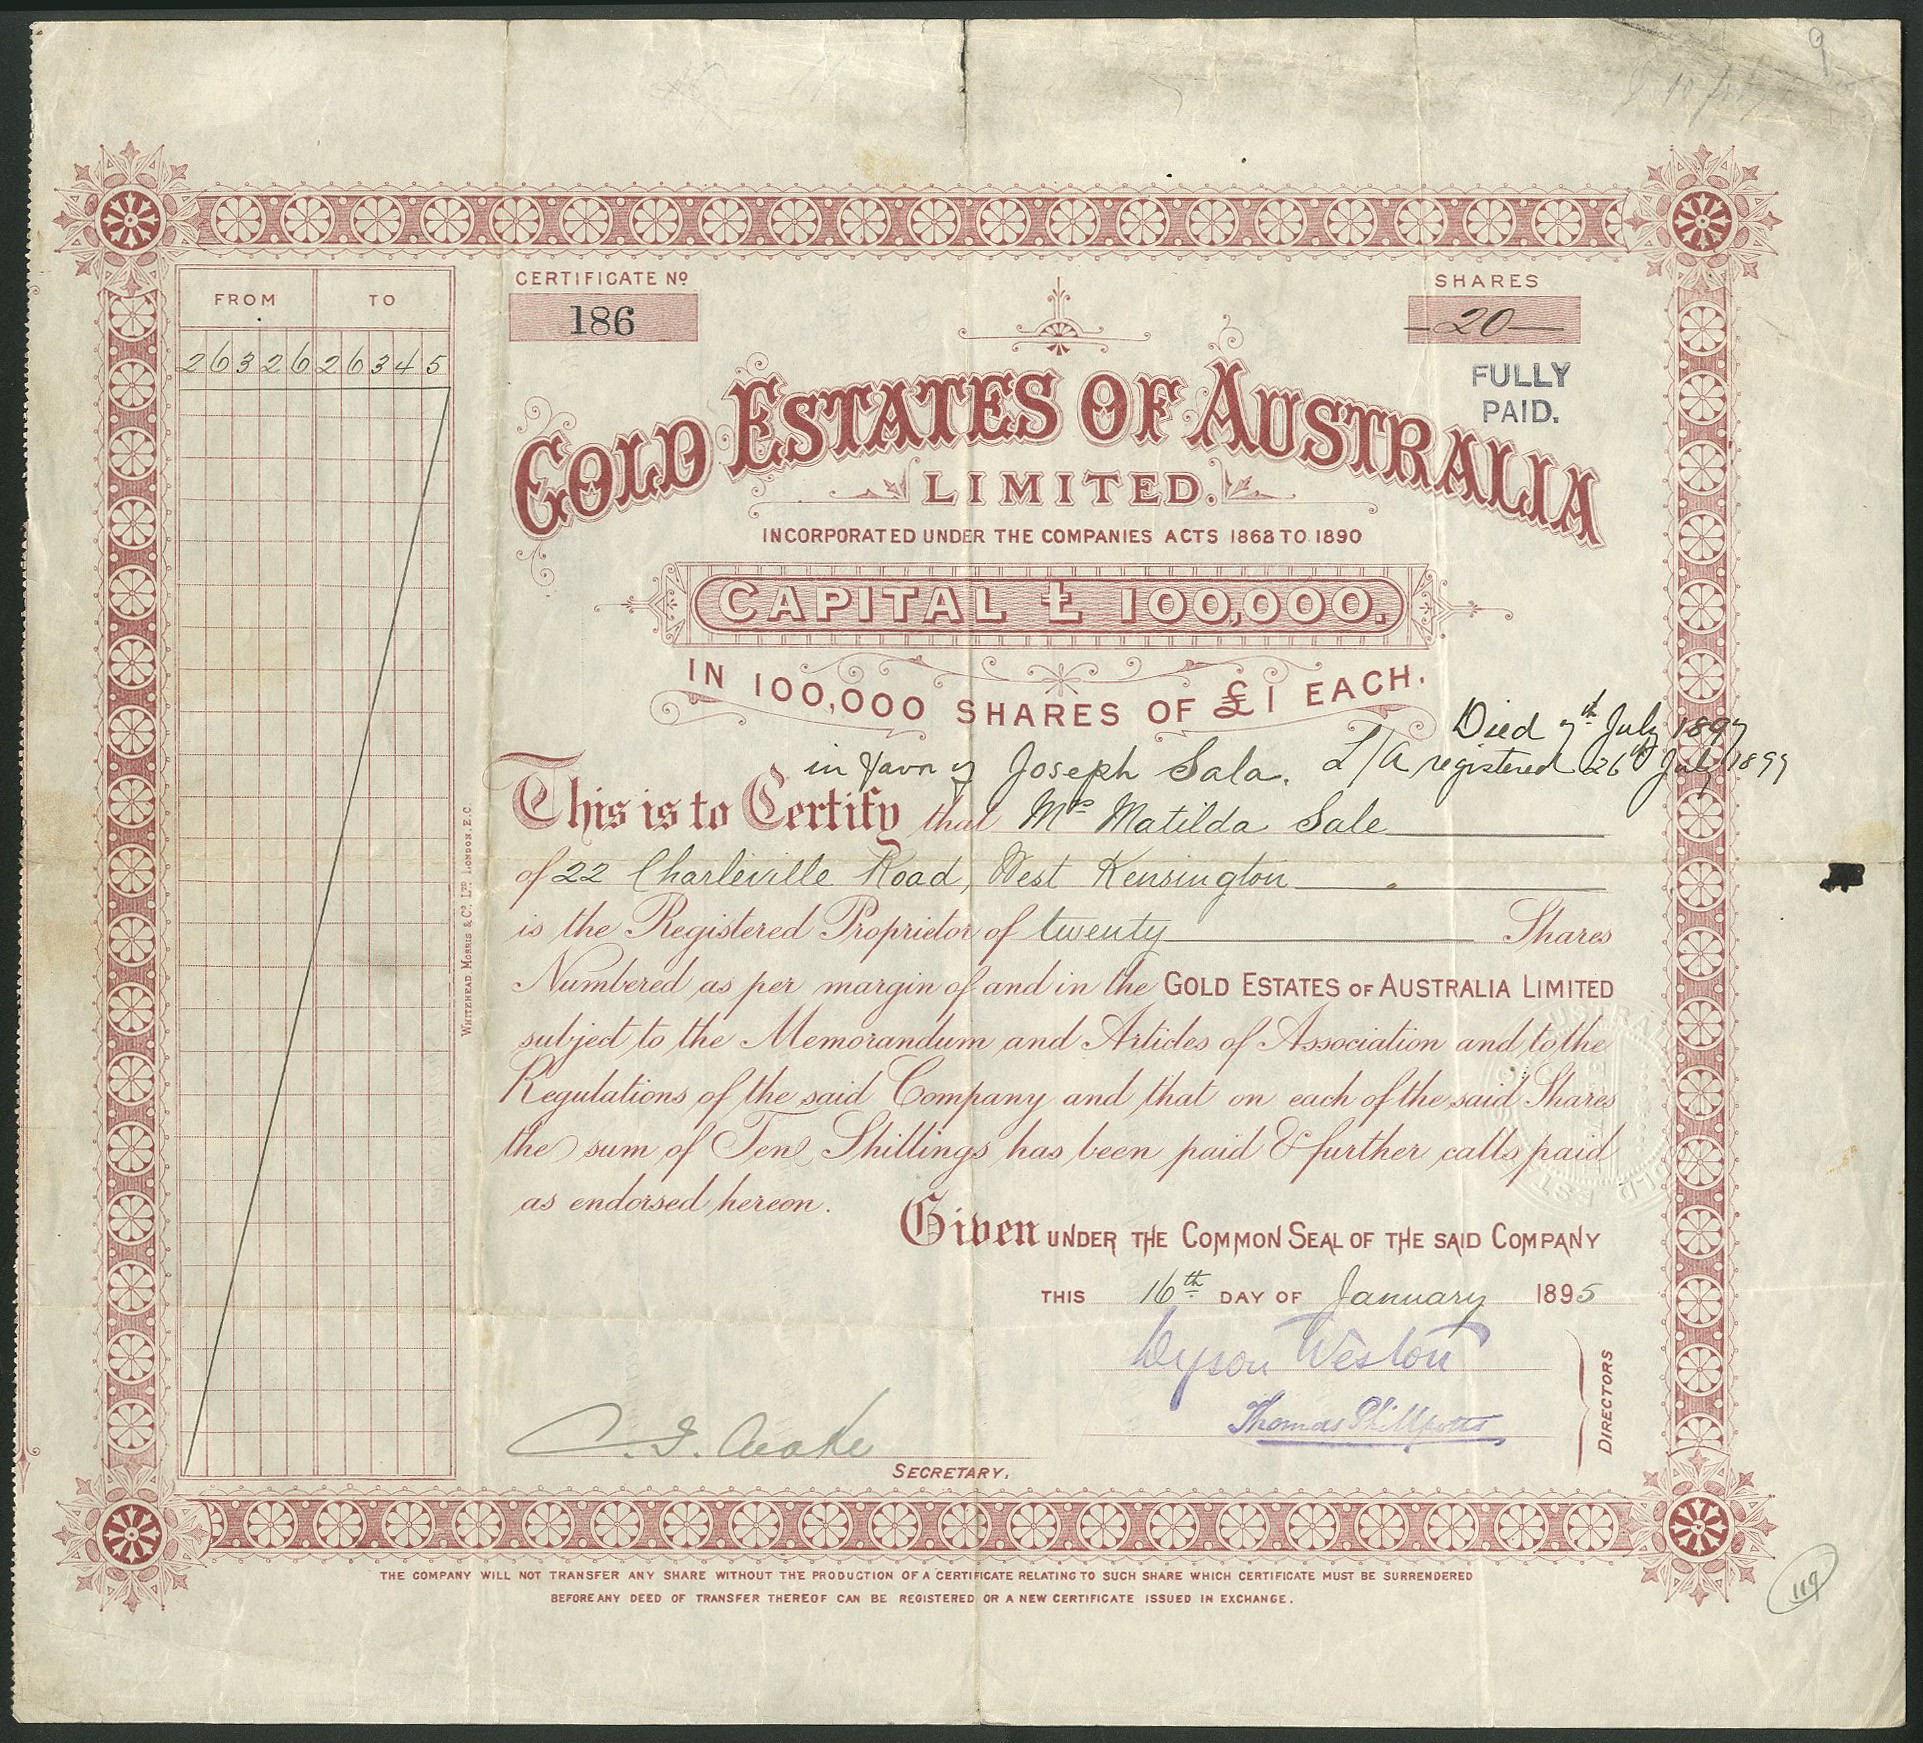 9
CERTIFICATE Nº
186
SHARES
20
FULLY
PAID.
FROM TO
26326 26345
GOLD ESTATES OF AUSTRALIA
LIMITED.
INCORPORATED UNDER THE COMPANIES ACTS 1868 TO 1890
CAPITAL £ 100,000.
IN 100,000 SHARES OF £1 EACH.
Died 7th July 1897
in favor of Joseph Sala. L/A registered 26th July 1897
This is to Certify that Mrs Matilda Sale
of 22 Charleville Road, West Kensington
is the Registered Proprietor of twenty Shares
Numbered as per margin of and in the GOLD ESTATES OF AUSTRALIA LIMITED
subject to the Memorandum and Articles of Association and to the
Regulations of the said Company and that on each of the said Shares
the sum of Ten Shillings has been paid & further calls paid
as endorsed hereon.
Given UNDER THE COMMON SEAL OF THE SAID COMPANY
THIS 16th DAY OF January 1895
Dyson Weston
Thomas Phillpotts
DIRECTORS
SECRETARY.
WHITEHEAD MORRIS & Cº LTD LONDON, E.C
THE COMPANY WILL NOT TRANSFER ANY SHARE WITHOUT THE PRODUCTION OF A CERTIFICATE RELATING TO SUCH SHARE WHICH CERTIFICATE MUST BE SURRENDERED
BEFORE ANY DEED OF TRANSFER THEREOF CAN BE REGISTERED OR A NEW CERTIFICATE ISSUED IN EXCHANGE.
119